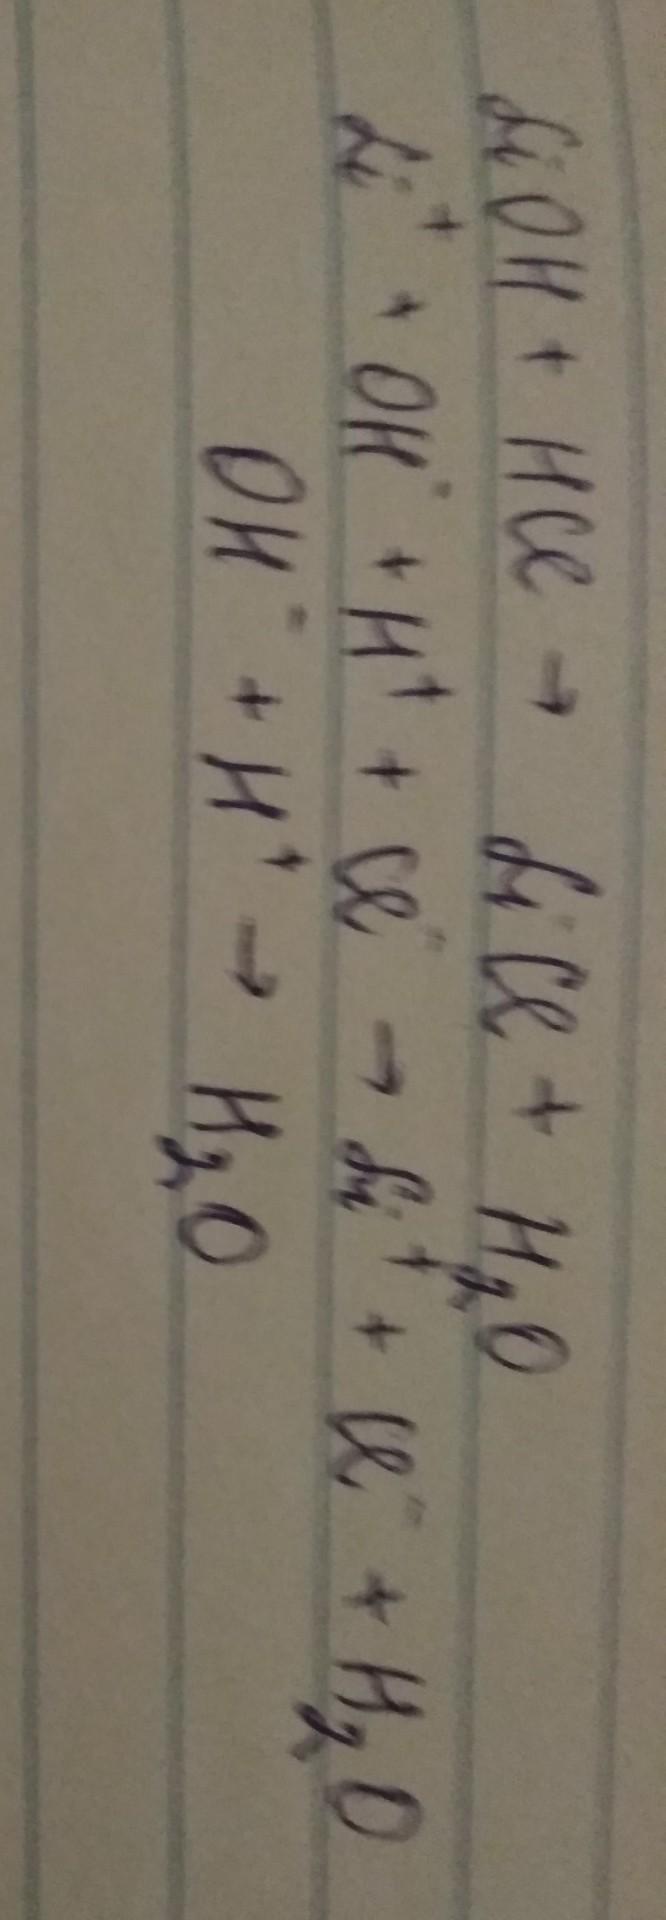 LiOH + HCl → LiCl + H₂O
Li⁺ + OH⁻ + H⁺ + Cl⁻ → Li⁺ + Cl⁻ + H₂O
OH⁻ + H⁺ → H₂O